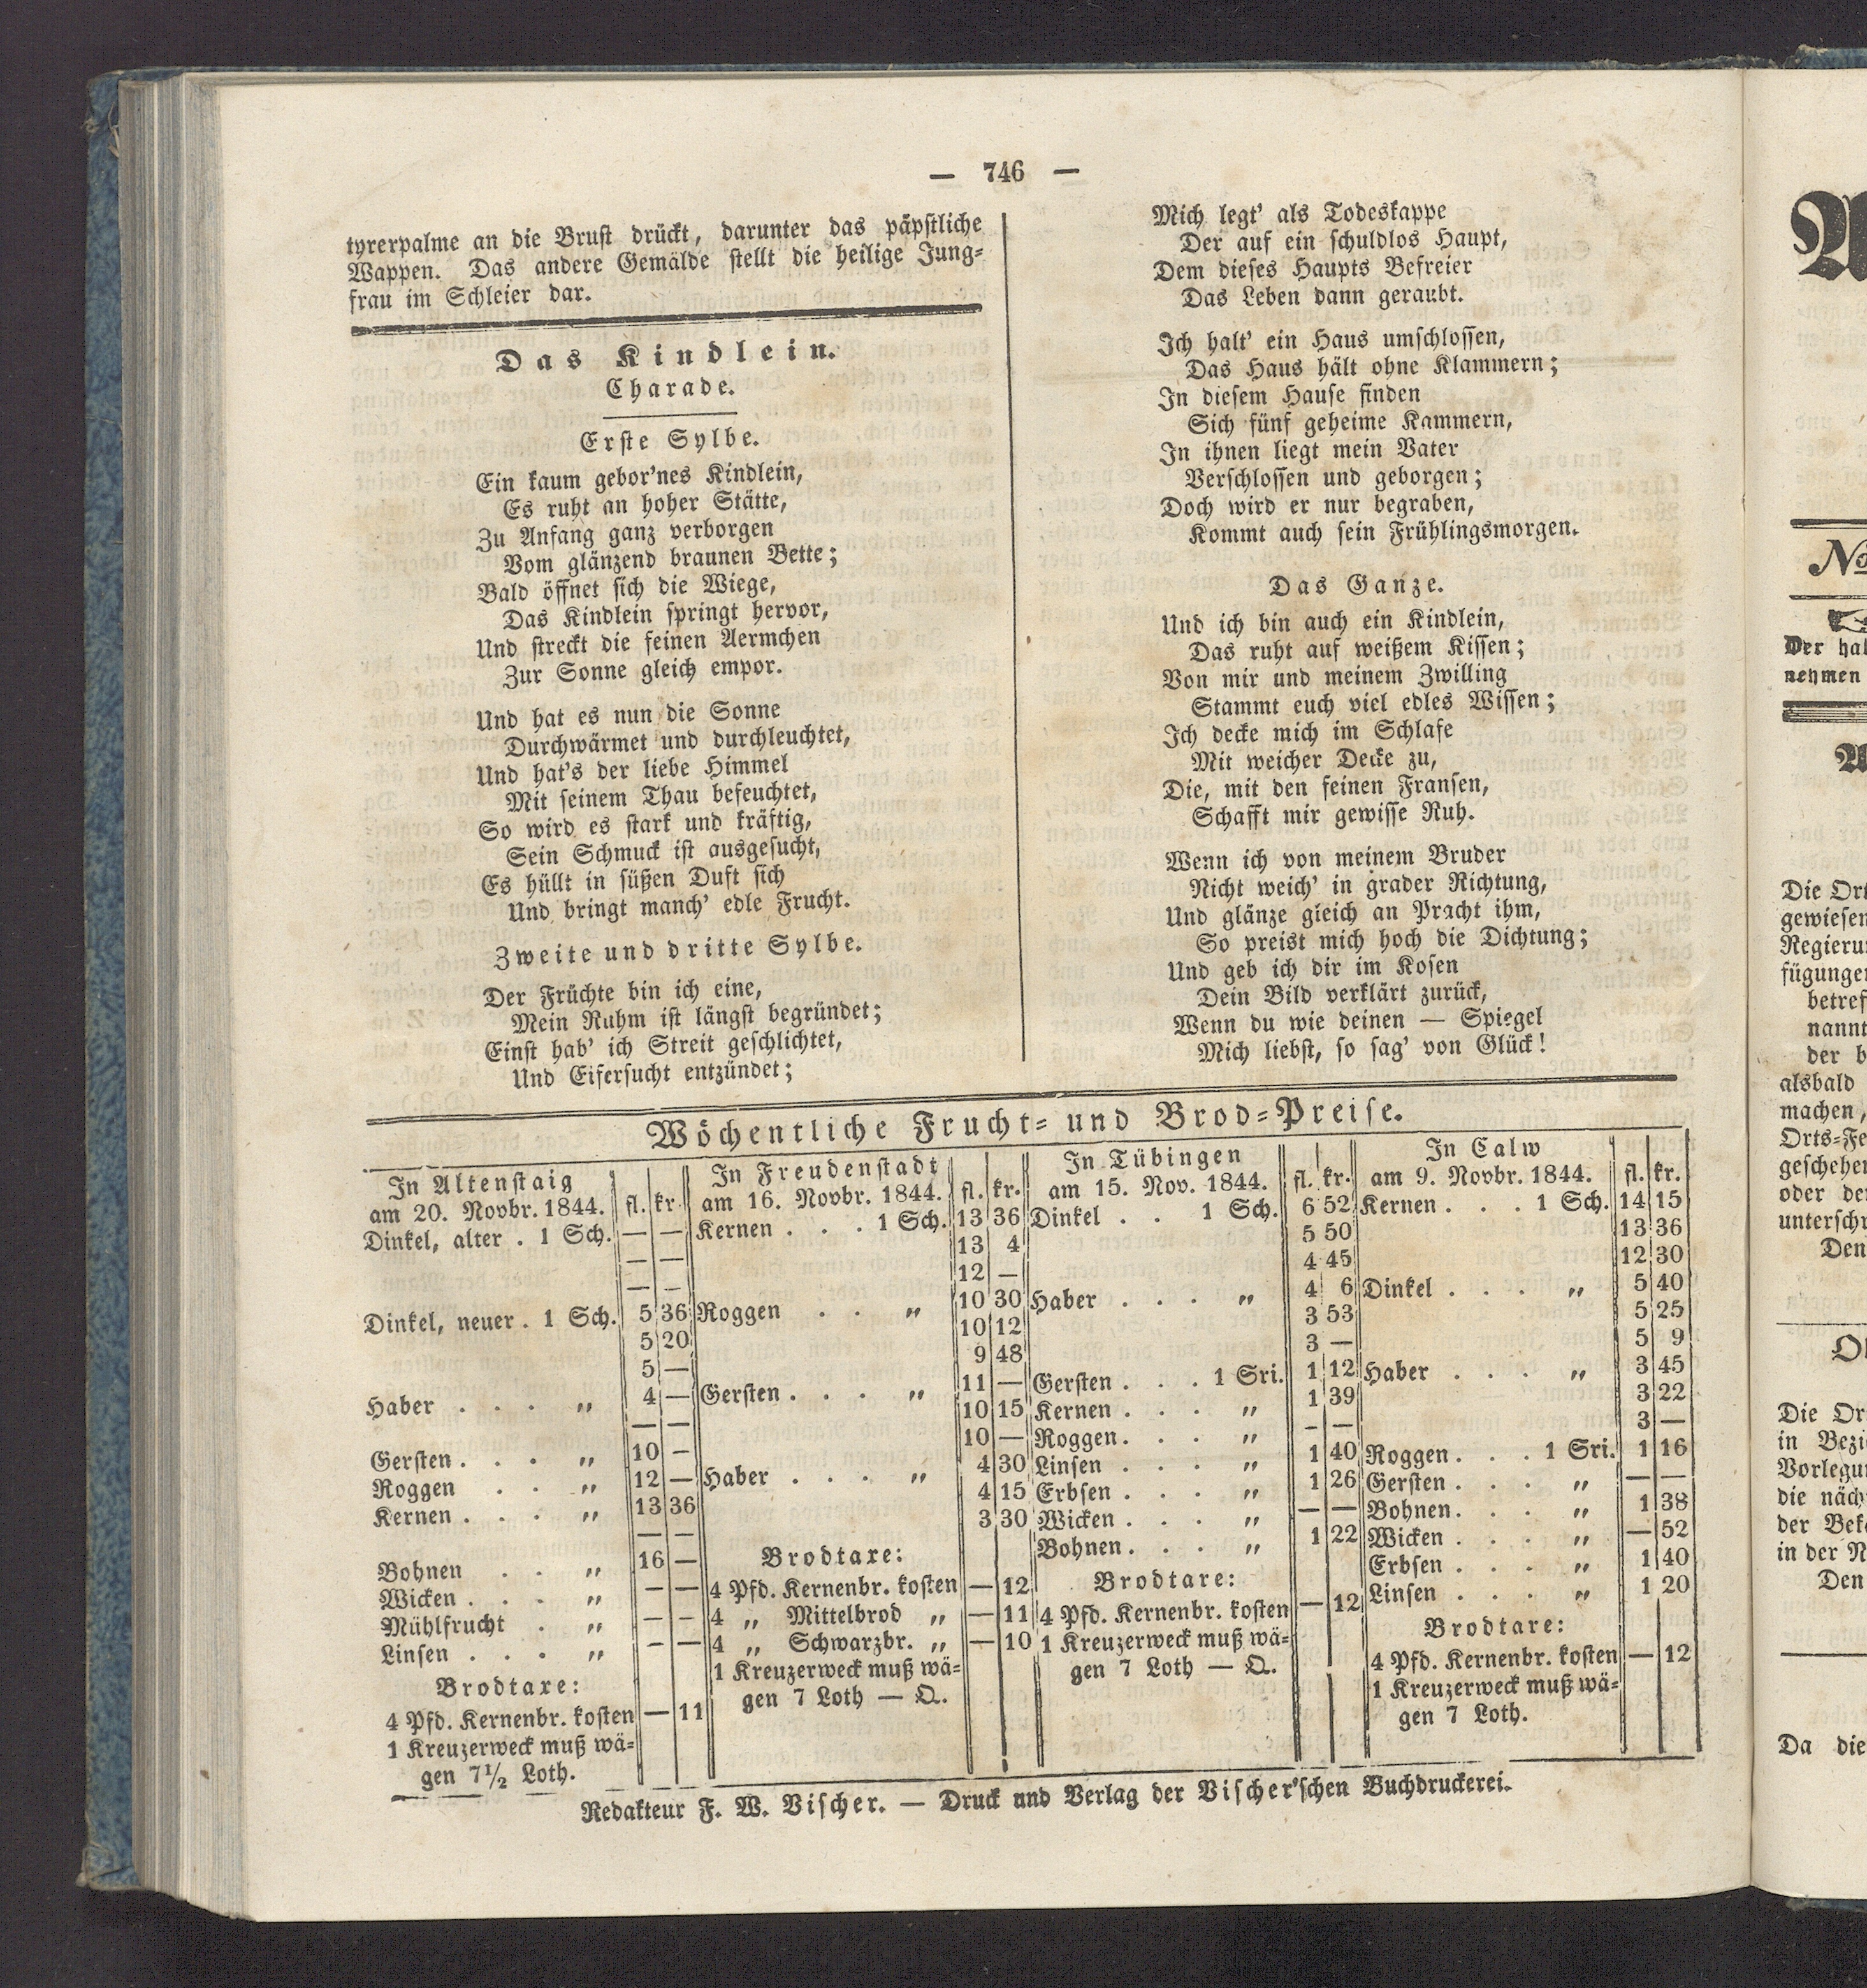 — 746 —
tyrerpalme an die Brust drückt, darunter das päpstliche
Wappen. Das andere Gemälde stellt die heilige Jung-
frau im Schleier dar.
Das Kindlein.
Charade.
Erste Sylbe.
Ein kaum gebor'nes Kindlein,
Es ruht an hoher Stätte,
Zu Anfang ganz verborgen
Vom glänzend braunen Bette;
Bald öffnet sich die Wiege,
Das Kindlein springt hervor,
Und streckt die feinen Aermchen
Zur Sonne gleich empor.
Und hat es nun die Sonne
Durchwärmet und durchleuchtet,
Und hat's der liebe Himmel
Mit seinem Thau befeuchtet,
So wird es stark und kräftig,
Sein Schmuck ist ausgesucht,
Es hüllt in süßen Duft sich
Und bringt manch' edle Frucht.
Zweite und dritte Sylbe.
Der Früchte bin ich eine,
Mein Ruhm ist längst begründet;
Einst hab' ich Streit geschlichtet,
Und Eifersucht entzündet;
Mich legt' als Todeskappe
Der auf ein schuldlos Haupt,
Dem dieses Haupts Befreier
Das Leben dann geraubt.
Ich halt' ein Haus umschlossen,
Das Haus hält ohne Klammern;
In diesem Hause finden
Sich fünf geheime Kammern,
In ihnen liegt mein Vater
Verschlossen und geborgen;
Doch wird er nur begraben,
Kommt auch sein Frühlingsmorgen.
Das Ganze.
Und ich bin auch ein Kindlein,
Das ruht auf weißem Kissen;
Von mir und meinem Zwilling
Stammt euch viel edles Wissen;
Ich decke mich im Schlafe
Mit weicher Decke zu,
Die, mit den feinen Fransen,
Schafft mir gewisse Ruh.
Wenn ich von meinem Bruder
Nicht weich' in grader Richtung,
Und glänze gleich an Pracht ihm,
So preist mich hoch die Dichtung;
Und geb ich dir im Kosen
Dein Bild verklärt zurück,
Wenn du wie deinen — Spiegel
Mich liebst, so sag' von Glück!
Wöchentliche Frucht- und Brod-Preise.
In Altenstaig
am 20. Novbr. 1844. fl. kr.
Dinkel, alter . 1 Sch. — —
— —
— —
Dinkel, neuer . 1 Sch. 5 36
5 20
5 —
Haber . . . „ 4 —
— —
Gersten . . . „ 10 —
Roggen . . „ 12 —
Kernen . . . „ 13 36
— —
Bohnen . . „ 16 —
Wicken . . . „ — —
Mühlfrucht . „ — —
Linsen . . . „ — —
Brodtaxe:
4 Pfd. Kernenbr. kosten — 11
1 Kreuzerweck muß wä-
gen 7½ Loth.
In Freudenstadt
am 16. Novbr. 1844. fl. kr.
Kernen . . . 1 Sch. 13 36
13 4
12 —
Roggen . . „ 10 30
10 12
9 48
Gersten . . . „ 11 —
10 15
10 —
Haber . . . „ 4 30
4 15
3 30
Brodtaxe:
4 Pfd. Kernenbr. kosten — 12
4 „ Mittelbrod „ — 11
4 „ Schwarzbr. „ — 10
1 Kreuzerweck muß wä-
gen 7 Loth — Q.
In Tübingen
am 15. Nov. 1844. fl. kr.
Dinkel . . 1 Sch. 6 52
5 50
4 45
Haber . . . „ 4 6
3 53
3 —
Gersten . . . 1 Sri. 1 12
Kernen . . . „ 1 39
Roggen . . . „ — —
Linsen . . . „ 1 40
Erbsen . . . „ 1 26
Wicken . . . „ — —
Bohnen . . . „ 1 22
Brodtaxe:
4 Pfd. Kernenbr. kosten — 12
1 Kreuzerweck muß wä-
gen 7 Loth — Q.
In Calw
am 9. Novbr. 1844. fl. kr.
Kernen . . . 1 Sch. 14 15
13 36
12 30
Dinkel . . . „ 5 40
5 25
5 9
Haber . . . „ 3 45
3 22
3 —
Roggen . . . 1 Sri. 1 16
Gersten . . . „ — —
Bohnen . . . „ 1 38
Wicken . . . „ — 52
Erbsen . . . „ 1 40
Linsen . . . „ 1 20
Brodtaxe:
4 Pfd. Kernenbr. kosten — 12
1 Kreuzerweck muß wä-
gen 7 Loth.
Redakteur F. W. Vischer. — Druck und Verlag der Vischer'schen Buchdruckerei.
No
Der
nehmen
Die
gewiesen
alsbald
machen,
oder
Den
Die
in
die
der
in der
Den
Da die